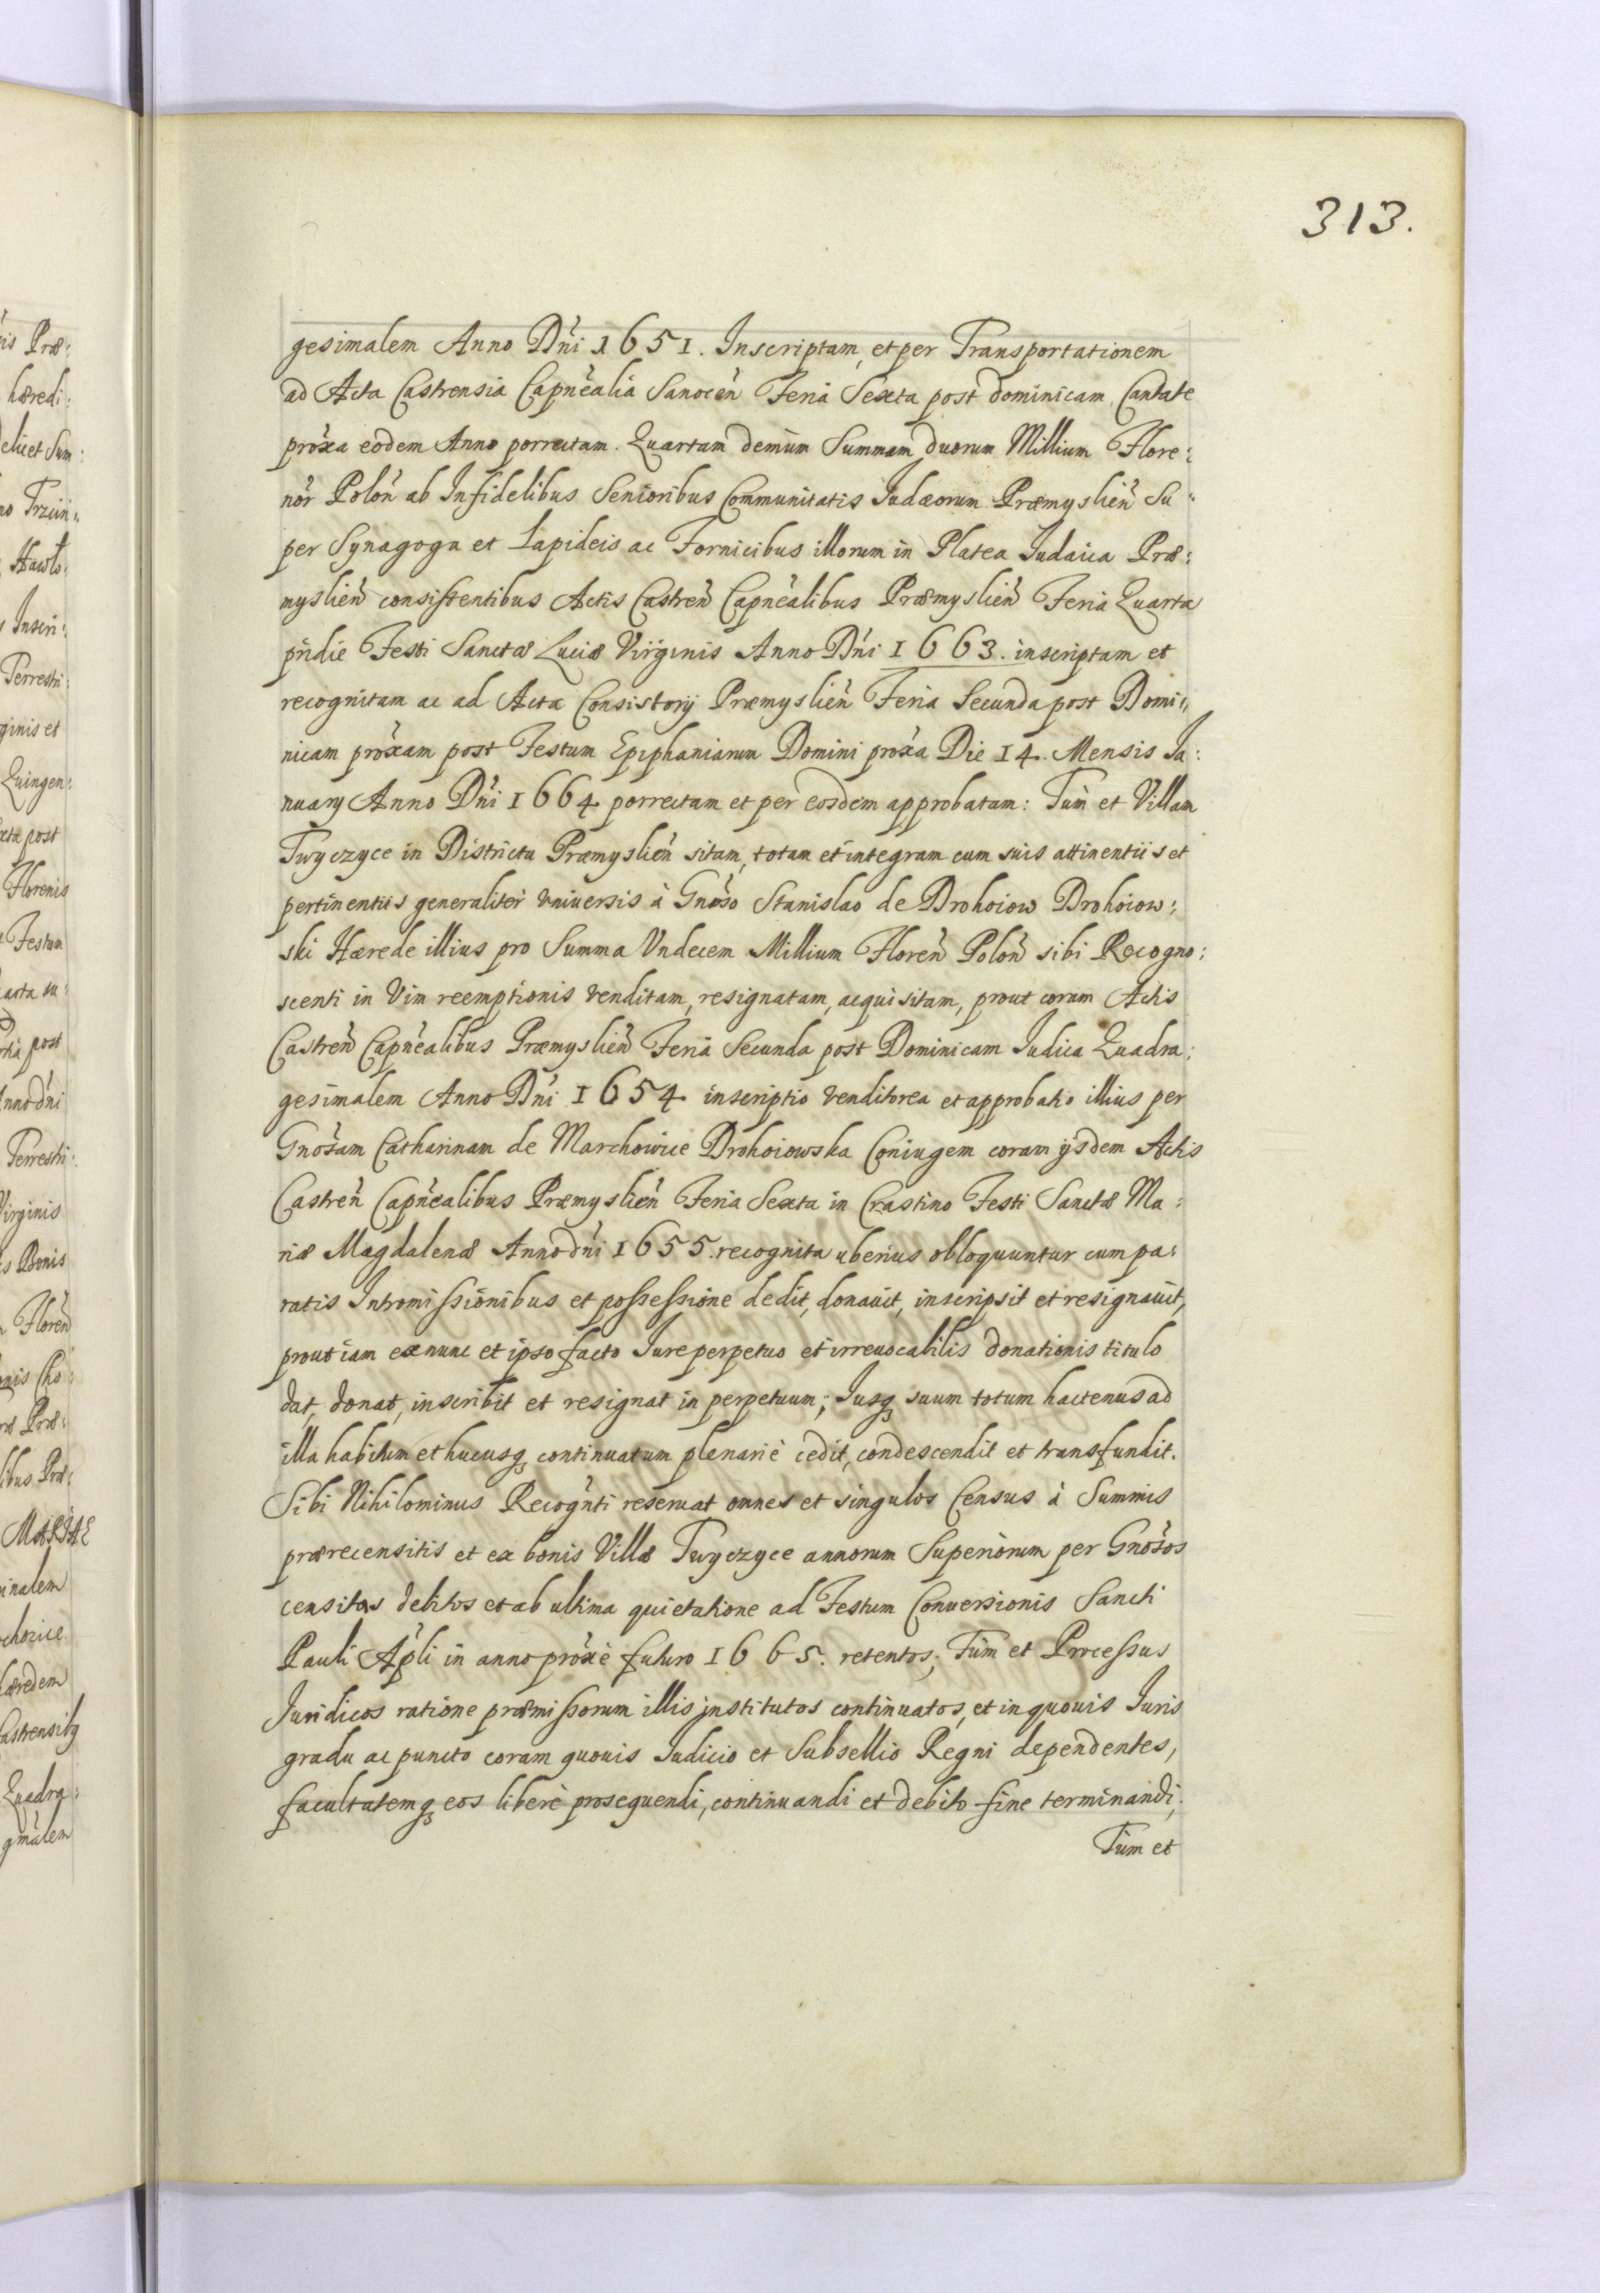 313.
gesimalem Anno Dńi 1651. Inscriptam, et per Transportationem
ad Acta Castrensia Capnẽalia Sanocen̄ Feria Sexta post dominicam Cantate
prox̃a eodem Anno porrectam. Quartam demùm Summam duorum Millium Flore:
nor̃ Polon̄ ab Infidelibus Senioribus Communitatis Judæorum Præmyslien̄ Su:
per Synagoga et Lapideis ac Fornicibus illorum in Platea Judaica Præ:
myslien̄ consistentibus Actis Castren̄ Capnẽalibus Præmyslien̄ Feria Quarta
pridie Festi Sanctæ Luciæ Virginis Anno Dńi 1663. inscriptam et
recognitam ac ad Acta Consistorij Præmyslien̄ Feria Secunda post Domi:
nicam prox̃am post Festum Epiphaniarum Domini prox̃a Die 14. Mensis Ja:
nuarij Anno Dńi 1664 porrectam et per eosdem approbatam: Tùm et Villam
Twyczyce in Districtu Præmyslien̄ sitam, totam et integram cum suis attinentiis et
pertinentiis generaliter vniuersis à Gnoso Stanislao de Drohoiow Drohoiow:
ski Hærede illius pro Summa Vndecem Millium Floren̄ Polon̄ sibi Recogno:
scenti in Vim reemptionis venditam, resignatam, acquisitam, prout coram Actis
Castren̄ Capnẽalibus Præmyslien̄ Feria Secunda post Dominicam Judica Quadra:
gesimalem Anno Dńi 1654 inscriptio venditorea et approbatio illius per
Gnosam Catharinam de Marchowice Drohoiowska Coniugem coram ijsdem Actis
Castren̄ Capnẽalibus Præmyslien̄ Feria Sexta in Crastino Festi Sanctæ Ma:
riæ Magdalenæ Anno dńi 1655. recognita uberius obloquuntur cum pa:
ratis Intromissionibus et possessione dedit, donauit, inscripsit et resignauit,
prout iam ex nunc et ipso facto Jure perpetuo et irreuocabilis donationis titulo
dat, donat, inscribit et resignat in perpetuum; Jusq suum totum hactenus ad
illa habitum et hucusq continuatum plenariè cedit, condescendit et transfundit.
Sibi Nihilominus Recogñti reseruat omnes et singulos Census à Summis
prærecensitis et ex bonis Villæ Twyczyce annorum Superiorum per Gnosos
censitas debitos et ab ultima quietatione ad Festum Conuersionis Sancti
Pauli Apli in anno prox̃e futuro 1665. retentos; Tùm et Processus
Juridicos ratione præmissorum illis jnstitutos continuatos, et in quouis Juris
gradu ac puncto coram quouis Judicio et Subsellio Regni dependentes,
facultatemq eos liberè prosequendi, continuandi et debito fine terminandi;
Tùm et